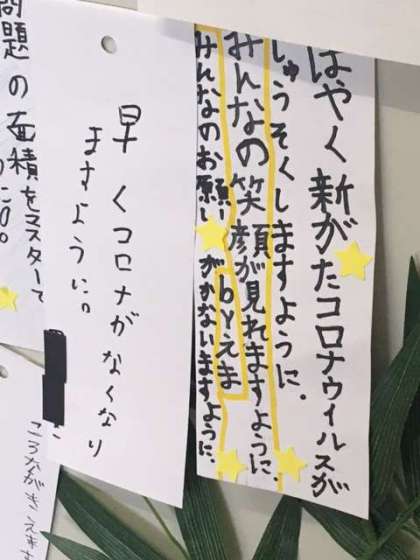 はやく新がたコロナウイルスが
しゅうそくしますように.
みんなの笑顔が見れますように.
byえま
みんなのお願いがかないますように.
早くコロナがなくなり
ますように。
問題の面積をマスターで
ころながきえま